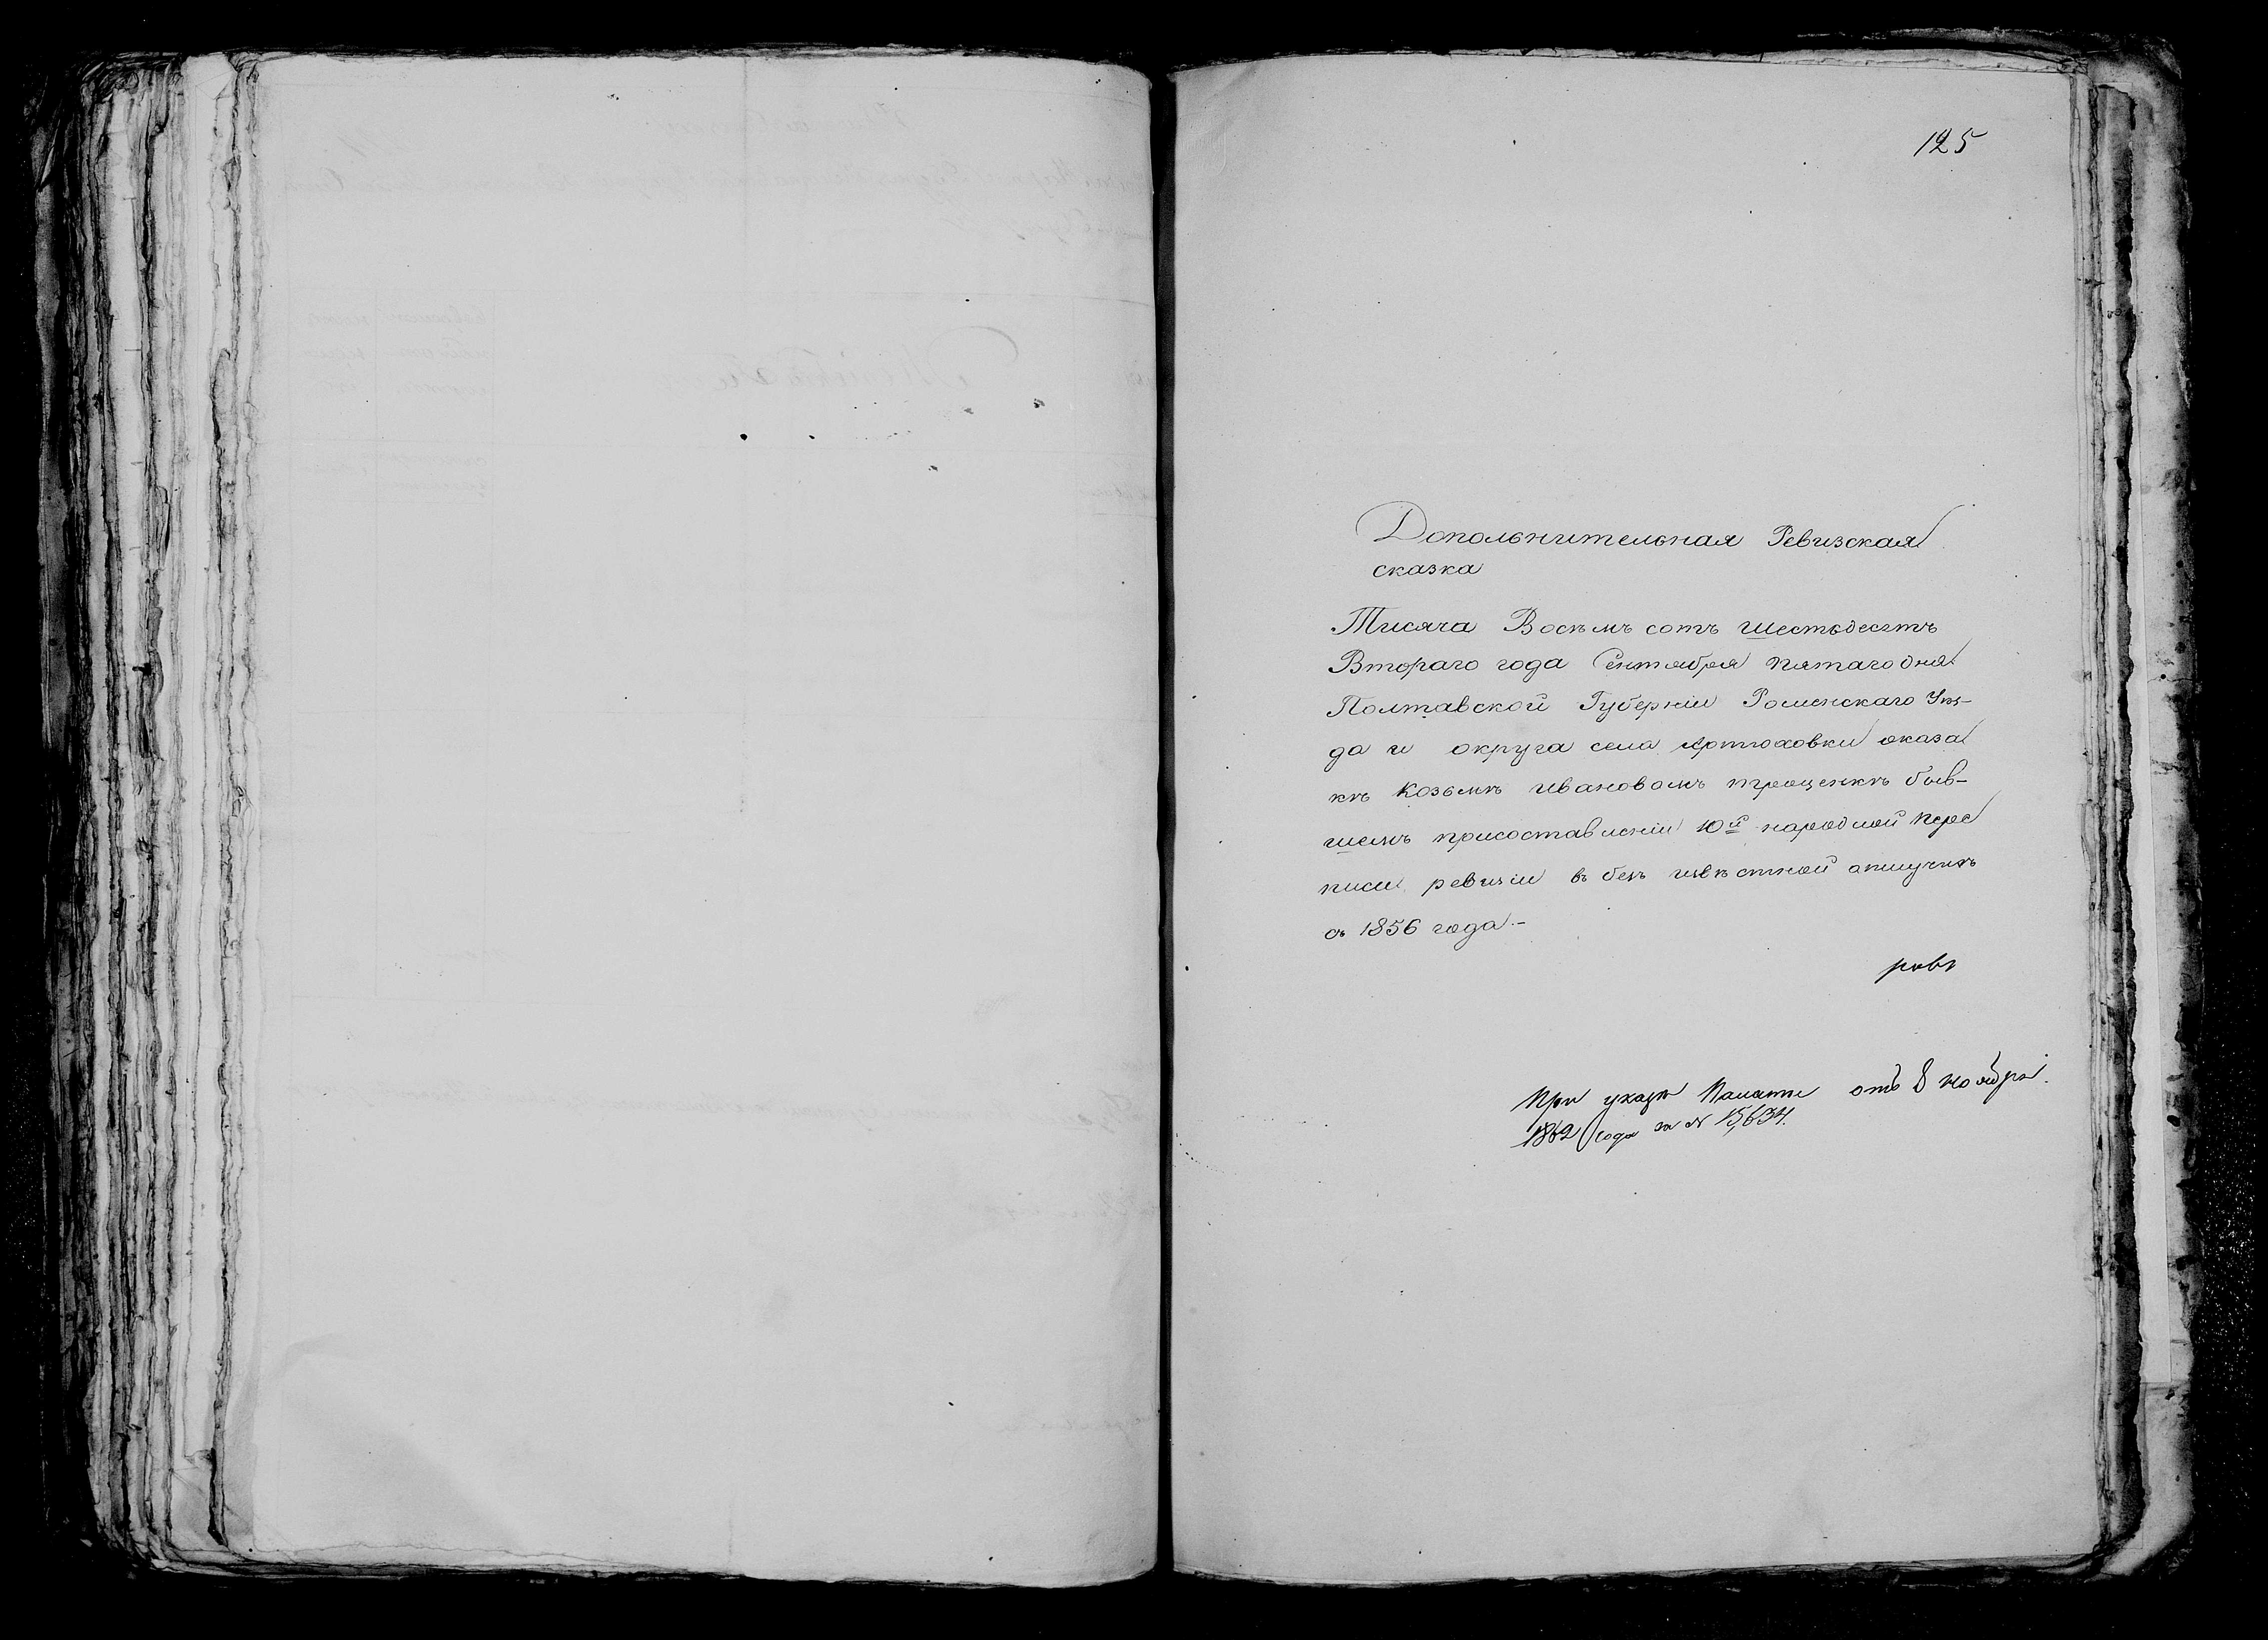 125
Допольнительная Ревизская
сказка
Тисяча Восѣмъ сотъ шестьдесятъ
Втораго года Сентября пятаго дня
Полтавской Губерніи Роменскаго Уѣз-
да и округа села Артюховки о каза
кѣ Козьмѣ Ивановомъ трощенкѣ быв-
шемъ присоставленіи 10й народной пере
писи ревизіи въ безъ извѣстной отлучкѣ
съ 1856 года.-
При указѣ Палаты отъ 8 ноября
1862 года за № 15,634.